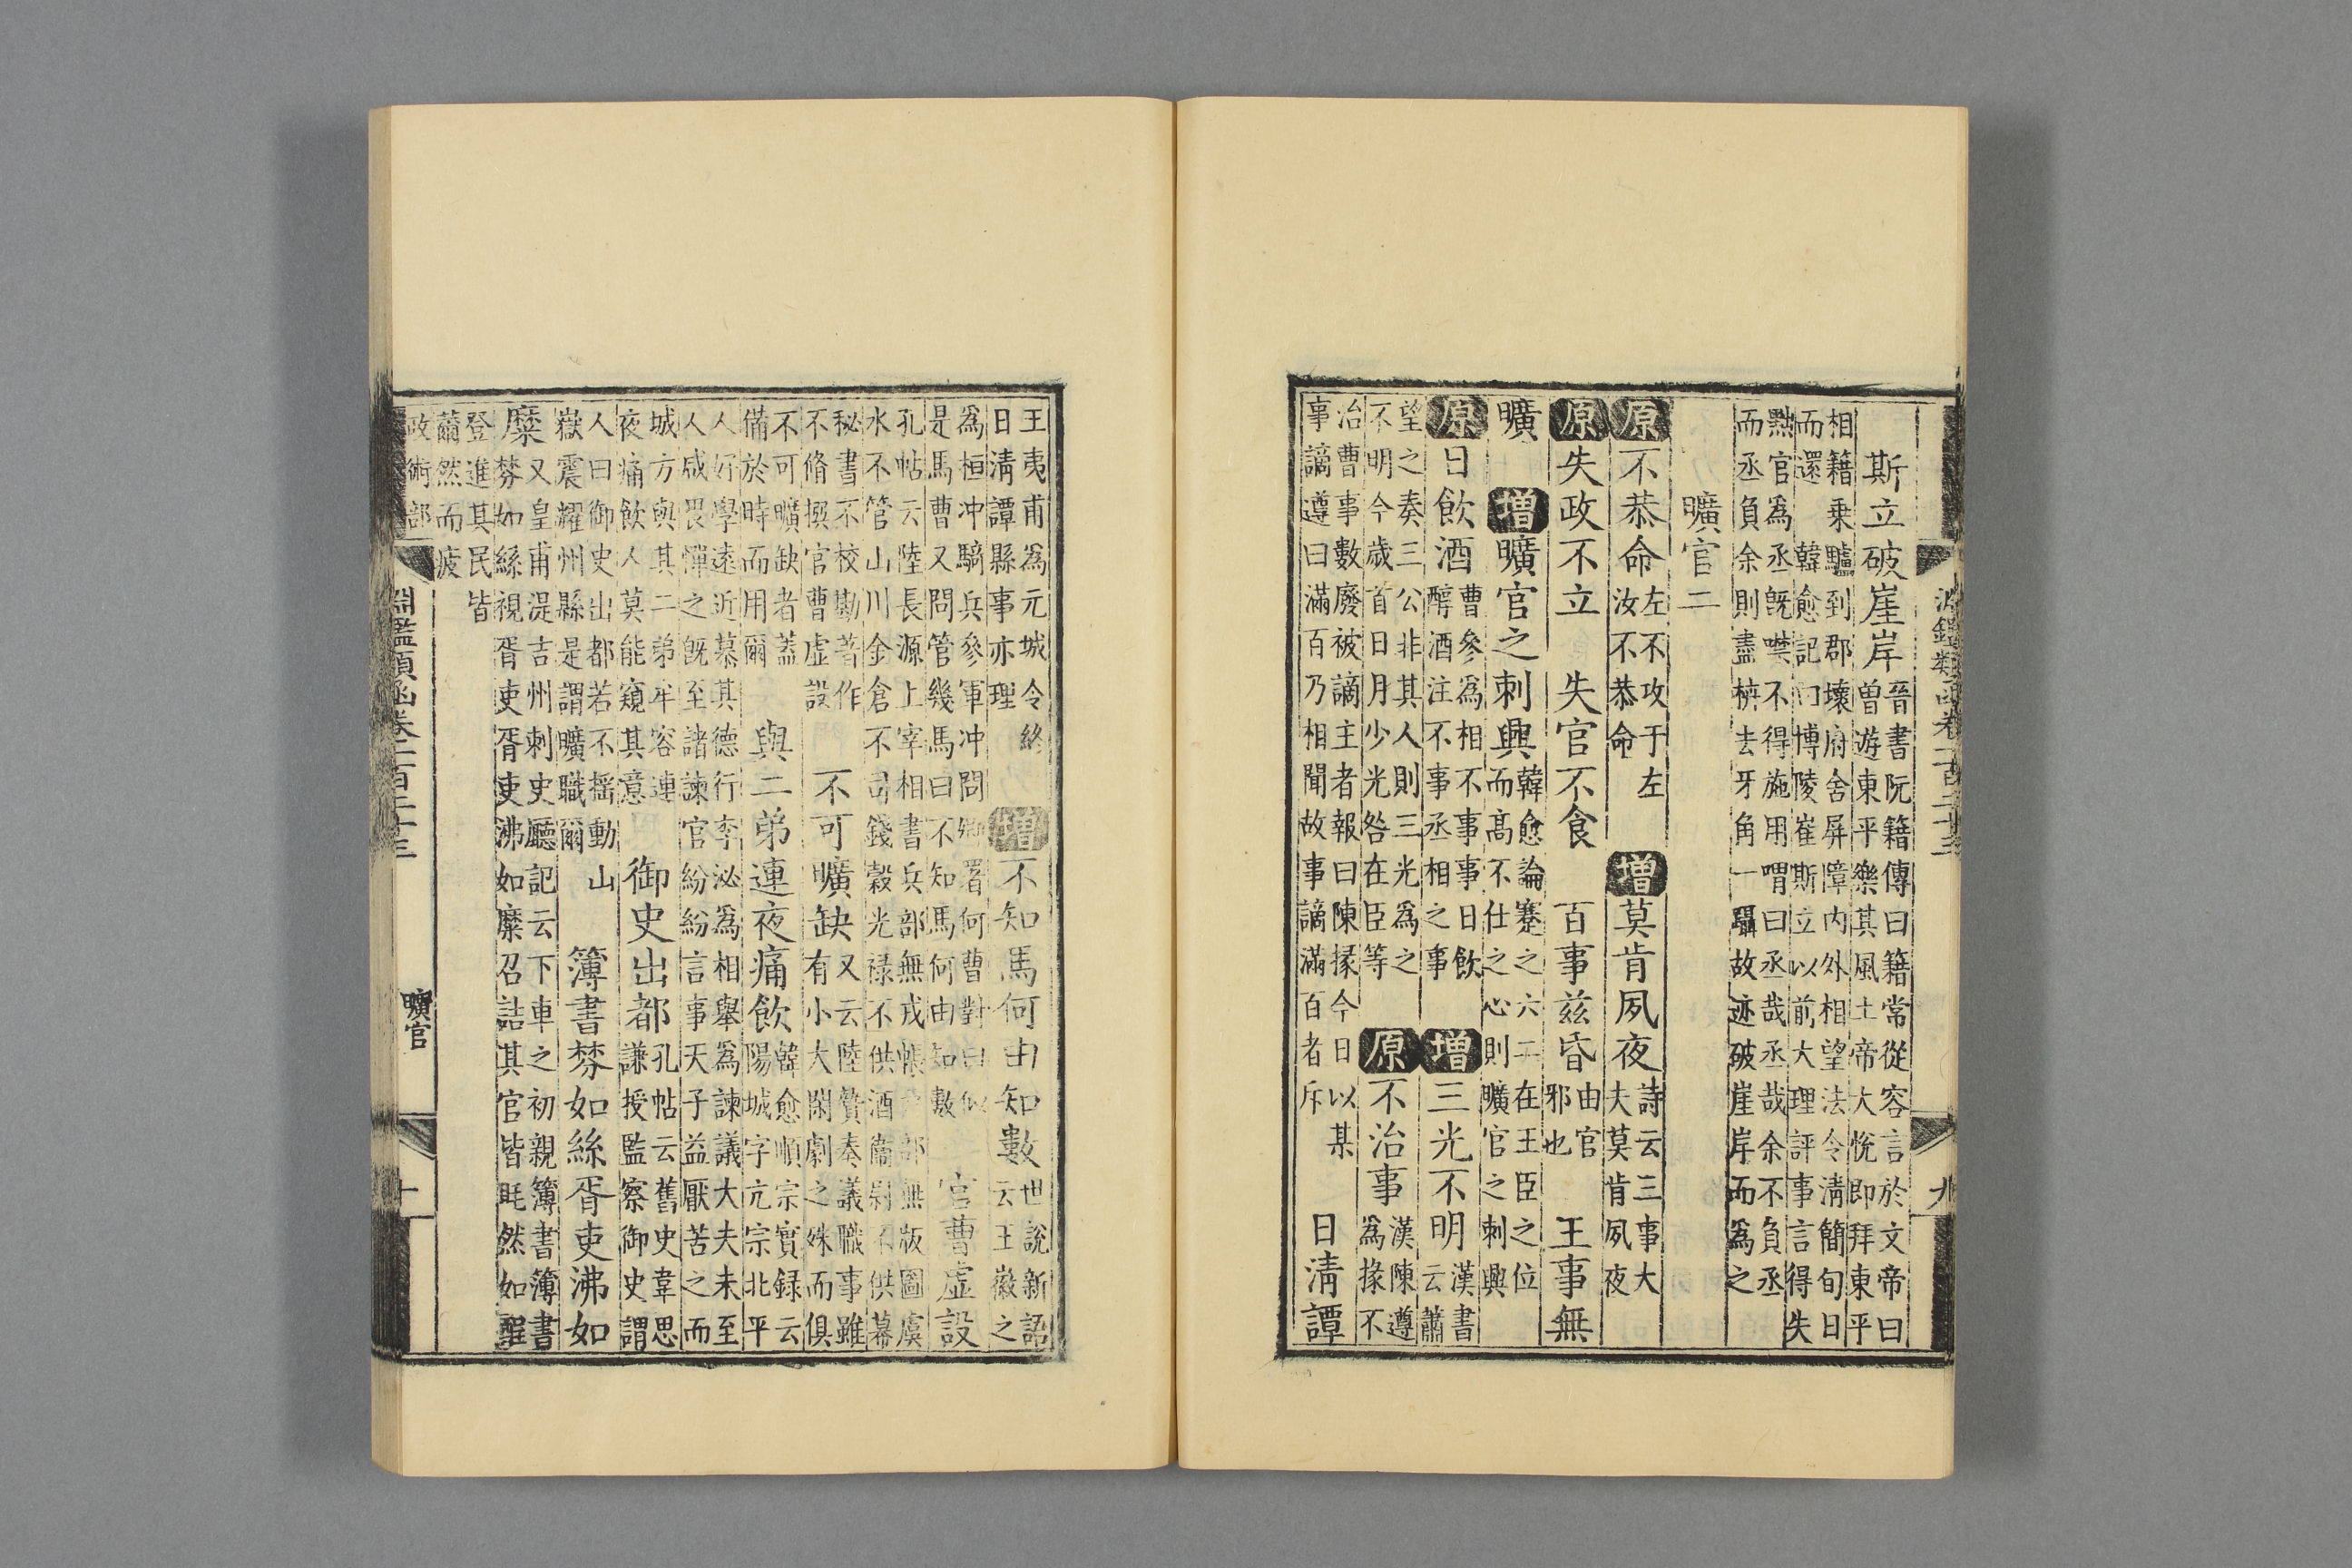 淵鑑類函卷一百二十三
九
斯立破崖岸晉書阮籍傳曰籍常從容言於文帝曰曾遊東平樂其風土帝大悅即拜東平
相籍乗驢到郡壞府舍屏障内外相望法令淸簡旬日而還 韓愈記曰博陵崔斯立以前大理評事言得失
黜官爲丞旣噤不得施用喟曰丞哉丞哉余不負丞而丞負余則盡枿去牙角一躡故迹破崖岸而爲之
曠官二
原不恭命左不攻于左汝不恭命 增莫肯夙夜詩云三事大夫莫肯夙夜
原失政不立 失官不食 百事兹昏由官邪也 王事無
曠 增曠官之刺興韓愈論蹇之六二在王臣之位而髙不仕之心則曠官之刺興
原日飲酒曹參爲相不事事日飲醇酒注不事丞相之事 增三光不明漢書云蕭
望之奏三公非其人則三光爲之不明今歲首日月少光咎在臣等 原不治事漢陳遵爲掾不
治曹事數廢被謫主者報曰陳掾今日以某事謫遵曰滿百乃相聞故事謫滿百者斥 日淸譚
王夷甫爲元城令終日淸譚縣事亦理 增不知馬何由知數世說新語云王徽之
爲桓冲騎兵參軍冲問卿署何曹對曰似是馬曹又問管幾馬曰不知馬何由知數 官曹虛設
孔帖云陸長源上宰相書兵部無戎帳戸部無版圖虞水不管山川金倉不司錢穀光祿不供酒衞尉不供幕
秘書不校勘著作不脩撰官曹虛設 不可曠缺又云陸贄奏議職事雖有小大閑劇之殊而俱
不可曠缺者蓋備於時而用爾 與二弟連夜痛飲韓愈順宗實録云陽城字亢宗北平
人好學遠近慕其德行李泌爲相舉爲諫議大夫未至人咸畏憚之旣至諸諫官紛紛言事天子益厭苦之而
城方與其二弟牟容連夜痛飲人莫能窺其意 御史出都孔帖云舊史韋思謙授監察御史謂
人曰御史出都若不揺動山嶽震耀州縣是謂曠職爾 簿書棼如絲胥吏沸如
糜又皇甫湜吉州刺史廳記云下車之初親簿書簿書棼如絲視胥吏胥吏沸如糜召詰其官皆眊然如酲
登進其民皆薾然而疲
政術部
淵鑑類函卷一百二十三
曠官
十